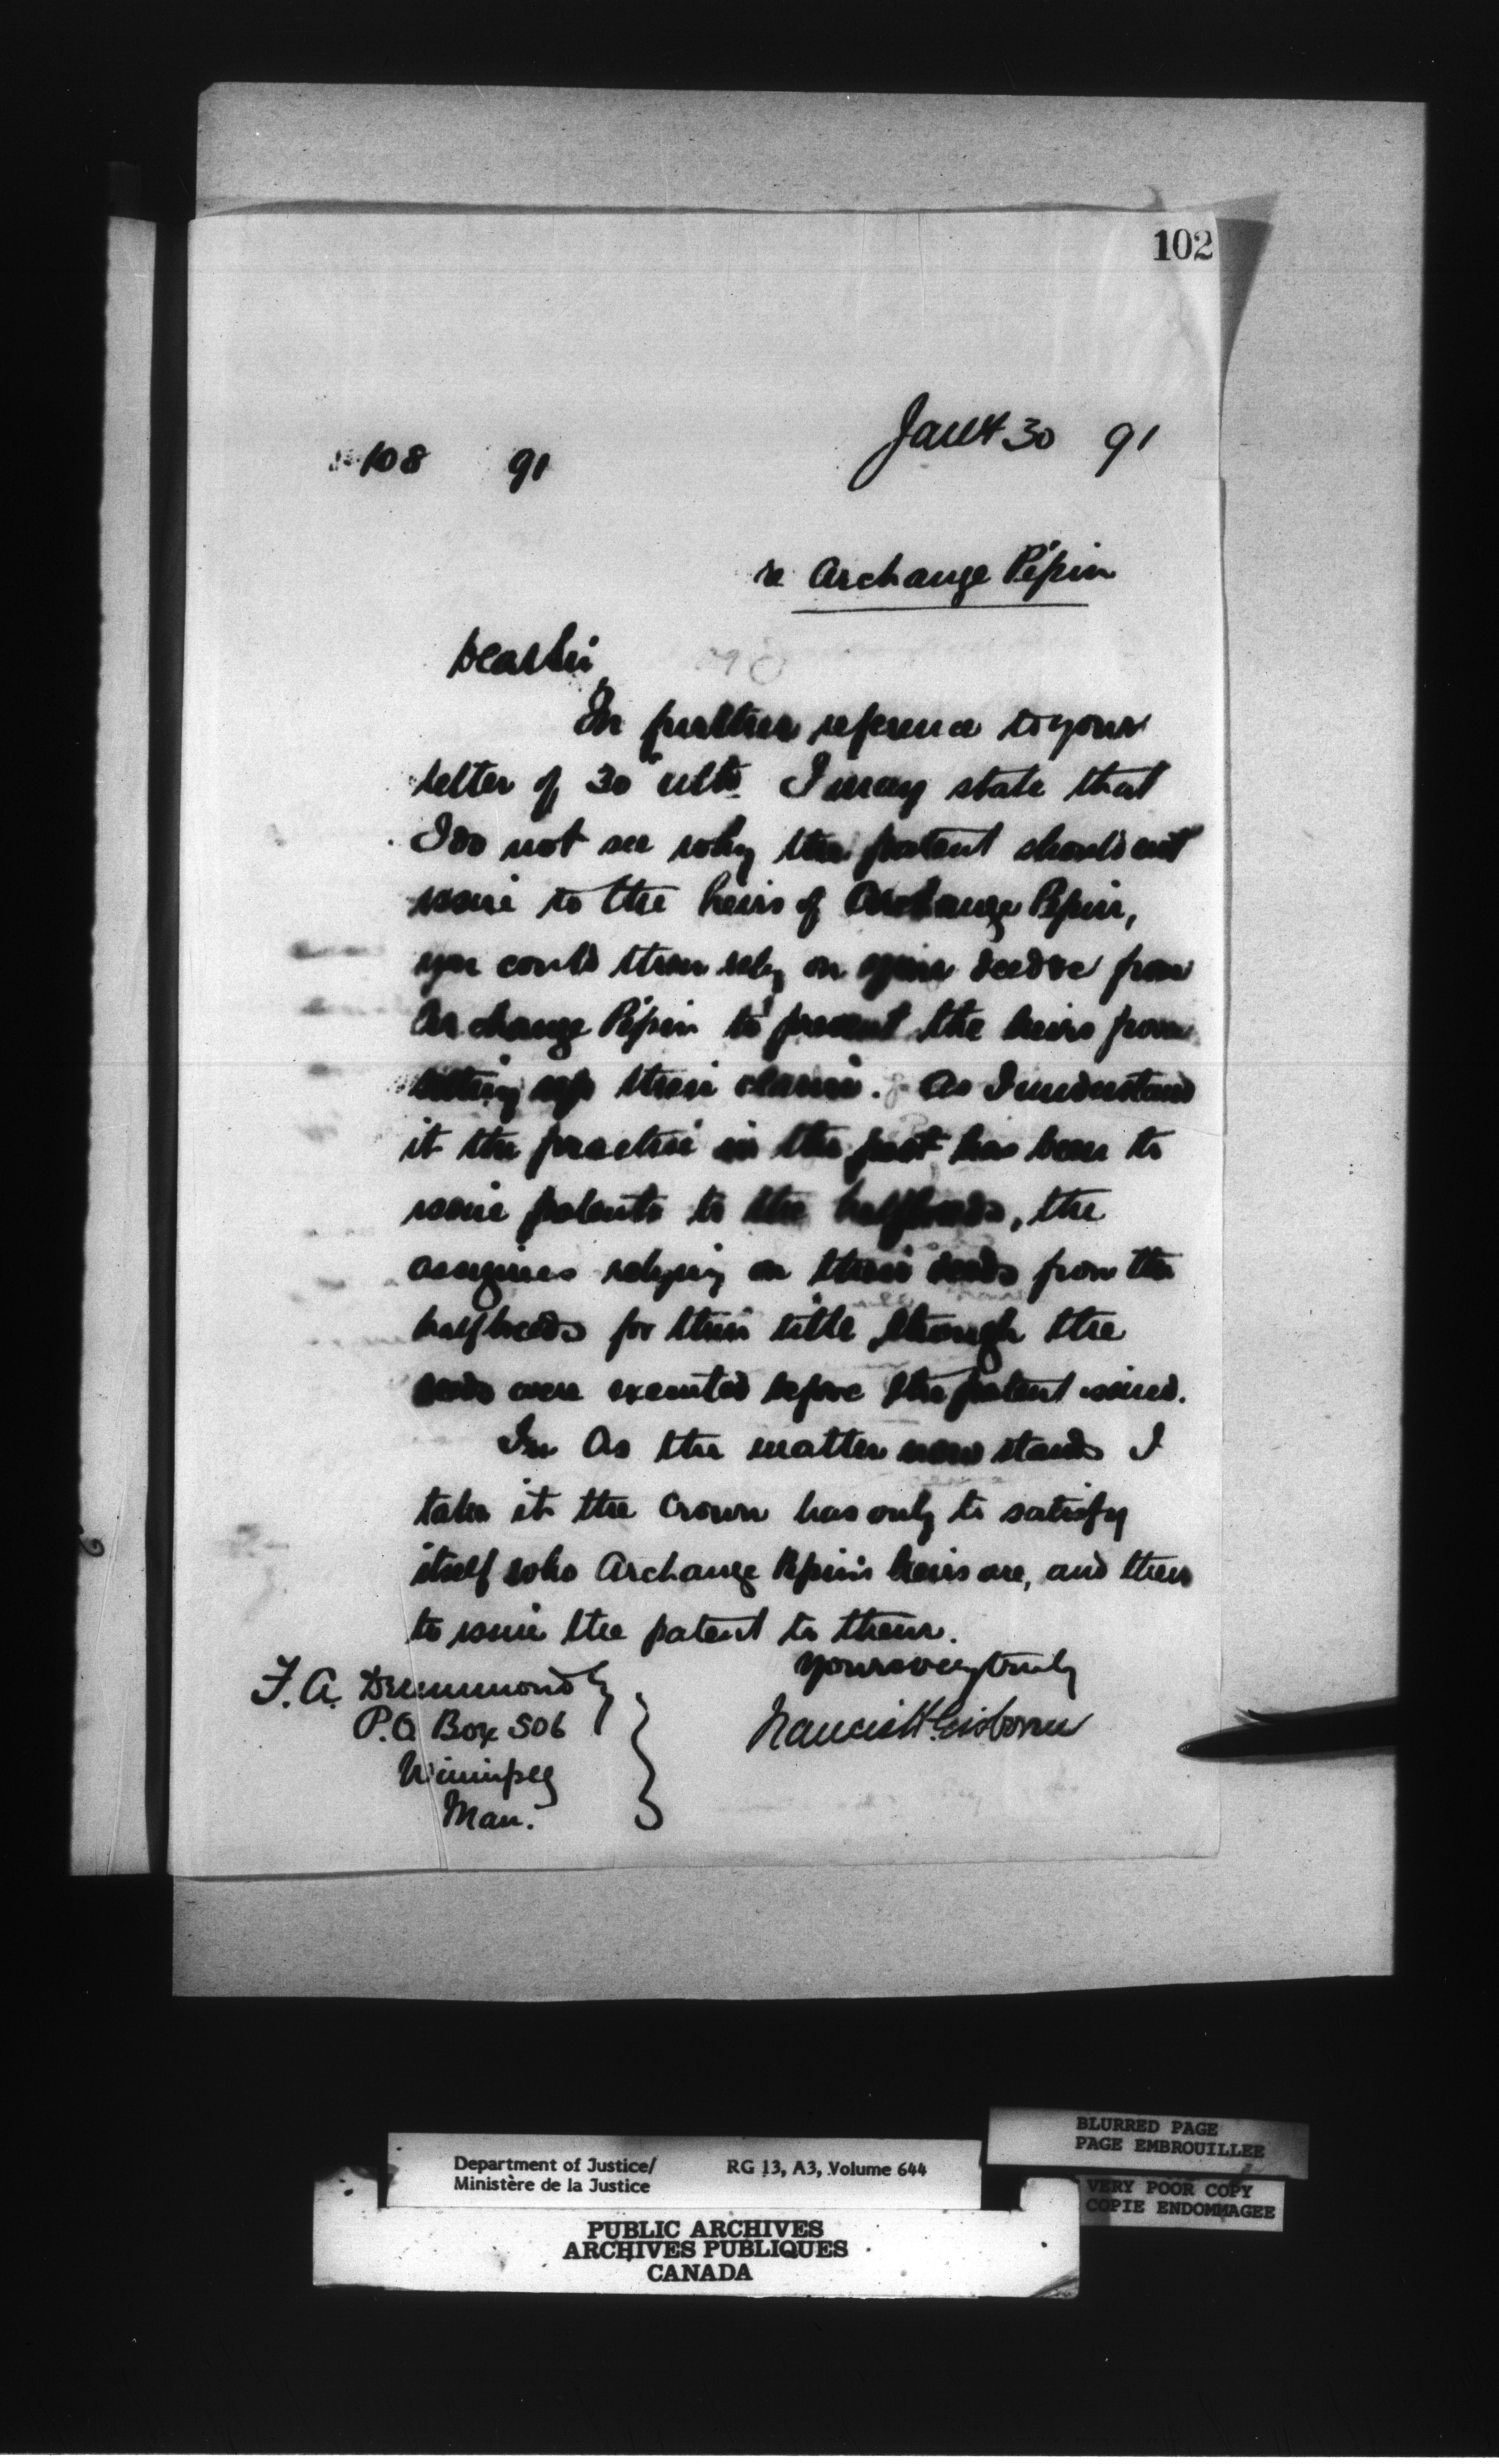 102
108 91
Jany 30 91
re Archange Pépin
Dear Sir
In further reference to your
letter of 30th ulto. I may state that
I do not see why the patent should not
issue to the heirs of Archange Pepin,
you could then rely on your deed from
Archange Pépin to prevent the heirs from
setting up their claim. As I understand
it the practice in the past has been to
issue patents to the halfbreeds, the
assignees relying on their deeds from the
halfbreeds for their title though the
deeds were executed before the patent issued.
In As the matter now stands I
take it the Crown has only to satisfy
itself who Archange Pepin's heirs are, and then
to issue the patent to them.
Yours very truly
Francis H. Gisborne
F. A. Drummond
P.O. Box 506
Winnipeg
Man.
BLURRED PAGE
PAGE EMBROUILLEE
VERY POOR COPY
COPIE ENDOMMAGEE
Department of Justice/ RG 13, A3, Volume 644
Ministère de la Justice
PUBLIC ARCHIVES
ARCHIVES PUBLIQUES
CANADA